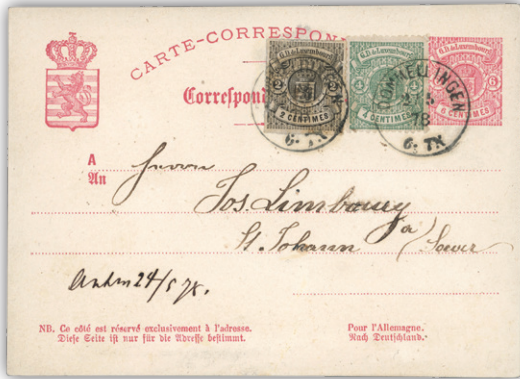 CARTE-CORRESPON
Correspond
G. D. de Luxembourg
2 CENTIMES
G. D. de Luxembourg
4 CENTIMES
G. D. de Luxembourg
6 CENTIMES
DOMMELDINGEN
78
6-7N
A
An
Herrn
Jos. Limbourg
St. Johann a/ Saar
24/5 78.
NB. Ce côté est réservé exclusivement à l'adresse.
Diese Seite ist nur für die Adresse bestimmt.
Pour l'Allemagne.
Nach Deutschland.